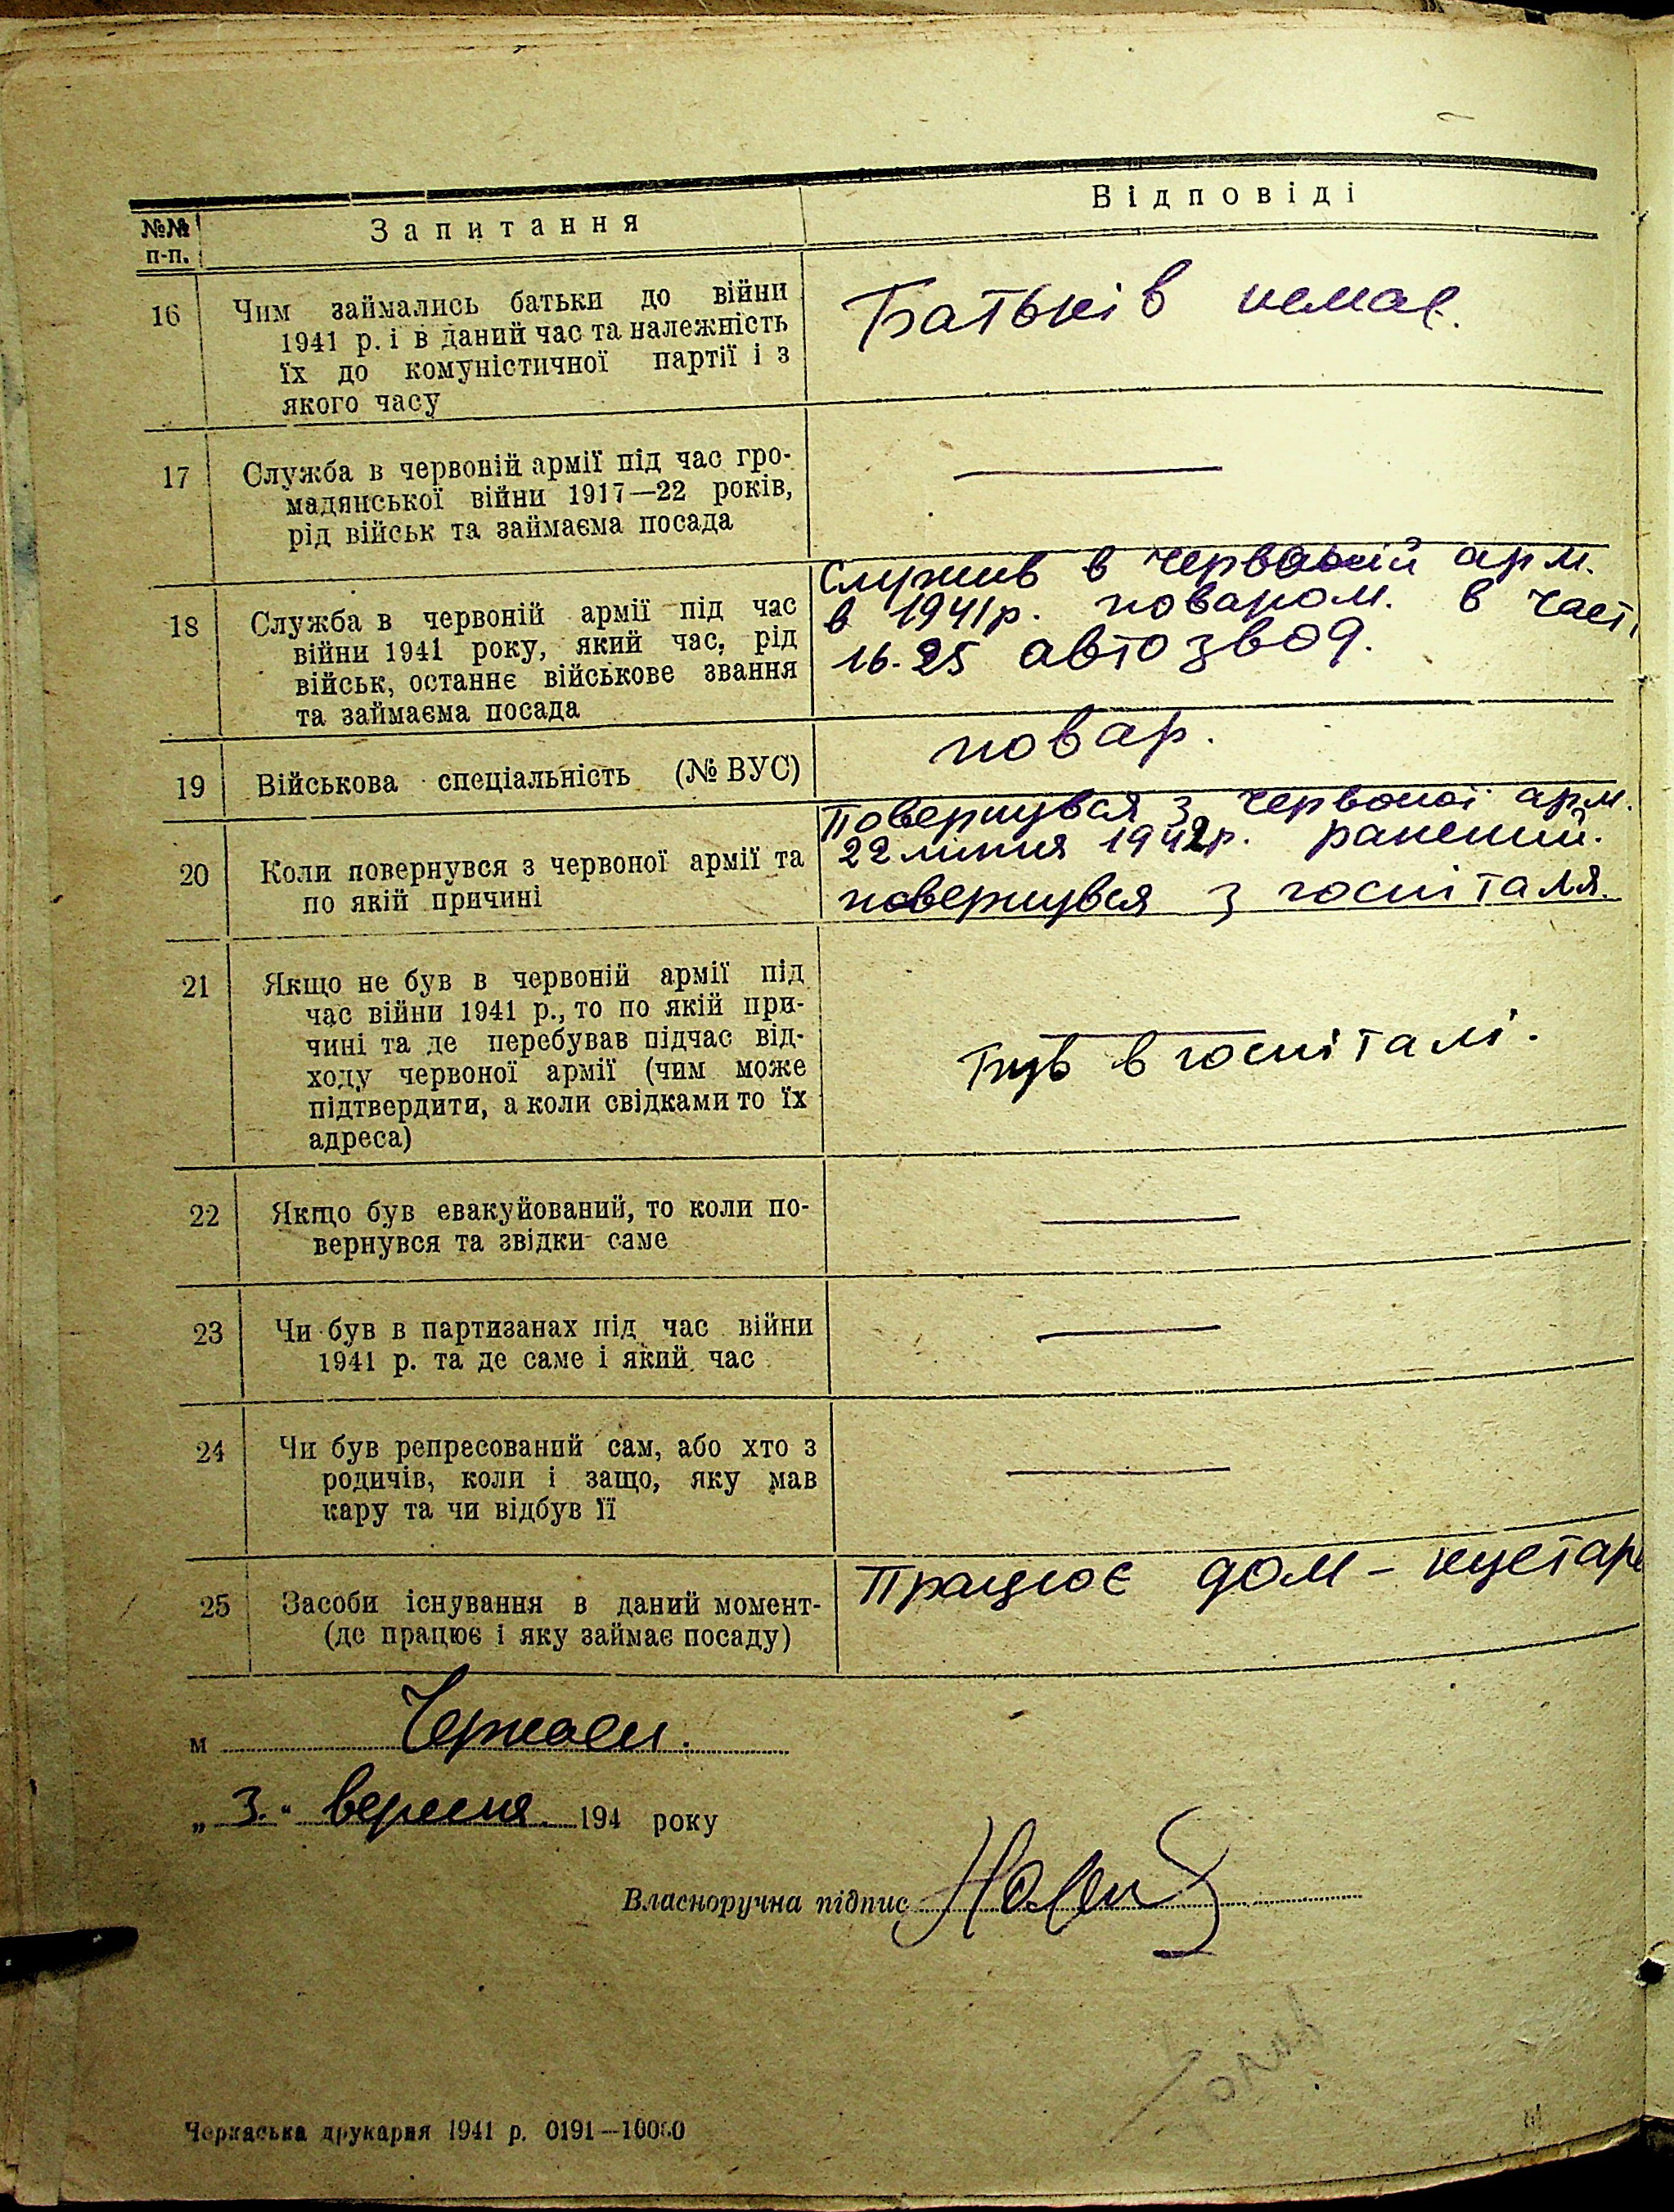 №№ п-п.
Запитання
Відповіді
16
Чим займались батьки до війни
1941 р. і в даний час та належність
їх до комуністичної партії і з
якого часу
Батьків немає.
17
Служба в червоній армії під час гро-
мадянської війни 1917—22 років,
рід військ та займаєма посада
18
Служба в червоній армії під час
війни 1941 року, який час, рід
військ, останнє військове звання
та займаєма посада
Служив в червоній арм.
в 1941р. поваром. в част.
16-25 автозвод.
19
Військова спеціальність (№ ВУС)
повар.
20
Коли повернувся з червоної армії та
по якій причині
Повернувся з червоної арм.
22 липня 1942р. ранений.
повернувся з госпіталя.
21
Якщо не був в червоній армії під
час війни 1941 р., то по якій при-
чині та де перебував підчас від-
ходу червоної армії (чим може
підтвердити, а коли свідками то їх
адреса)
Був в госпіталі.
22
Якщо був евакуйований, то коли по-
вернувся та звідки саме
23
Чи був в партизанах під час війни
1941 р. та де саме і який час
24
Чи був репресований сам, або хто з
родичів, коли і защо, яку мав
кару та чи відбув її
25
Засоби існування в даний момент-
(де працює і яку займає посаду)
Працює дом-кустарь
м Черкаси.
„3." вересня 194 року
Власноручна підпис
Черкаська друкарня 1941 р. 0191—10000